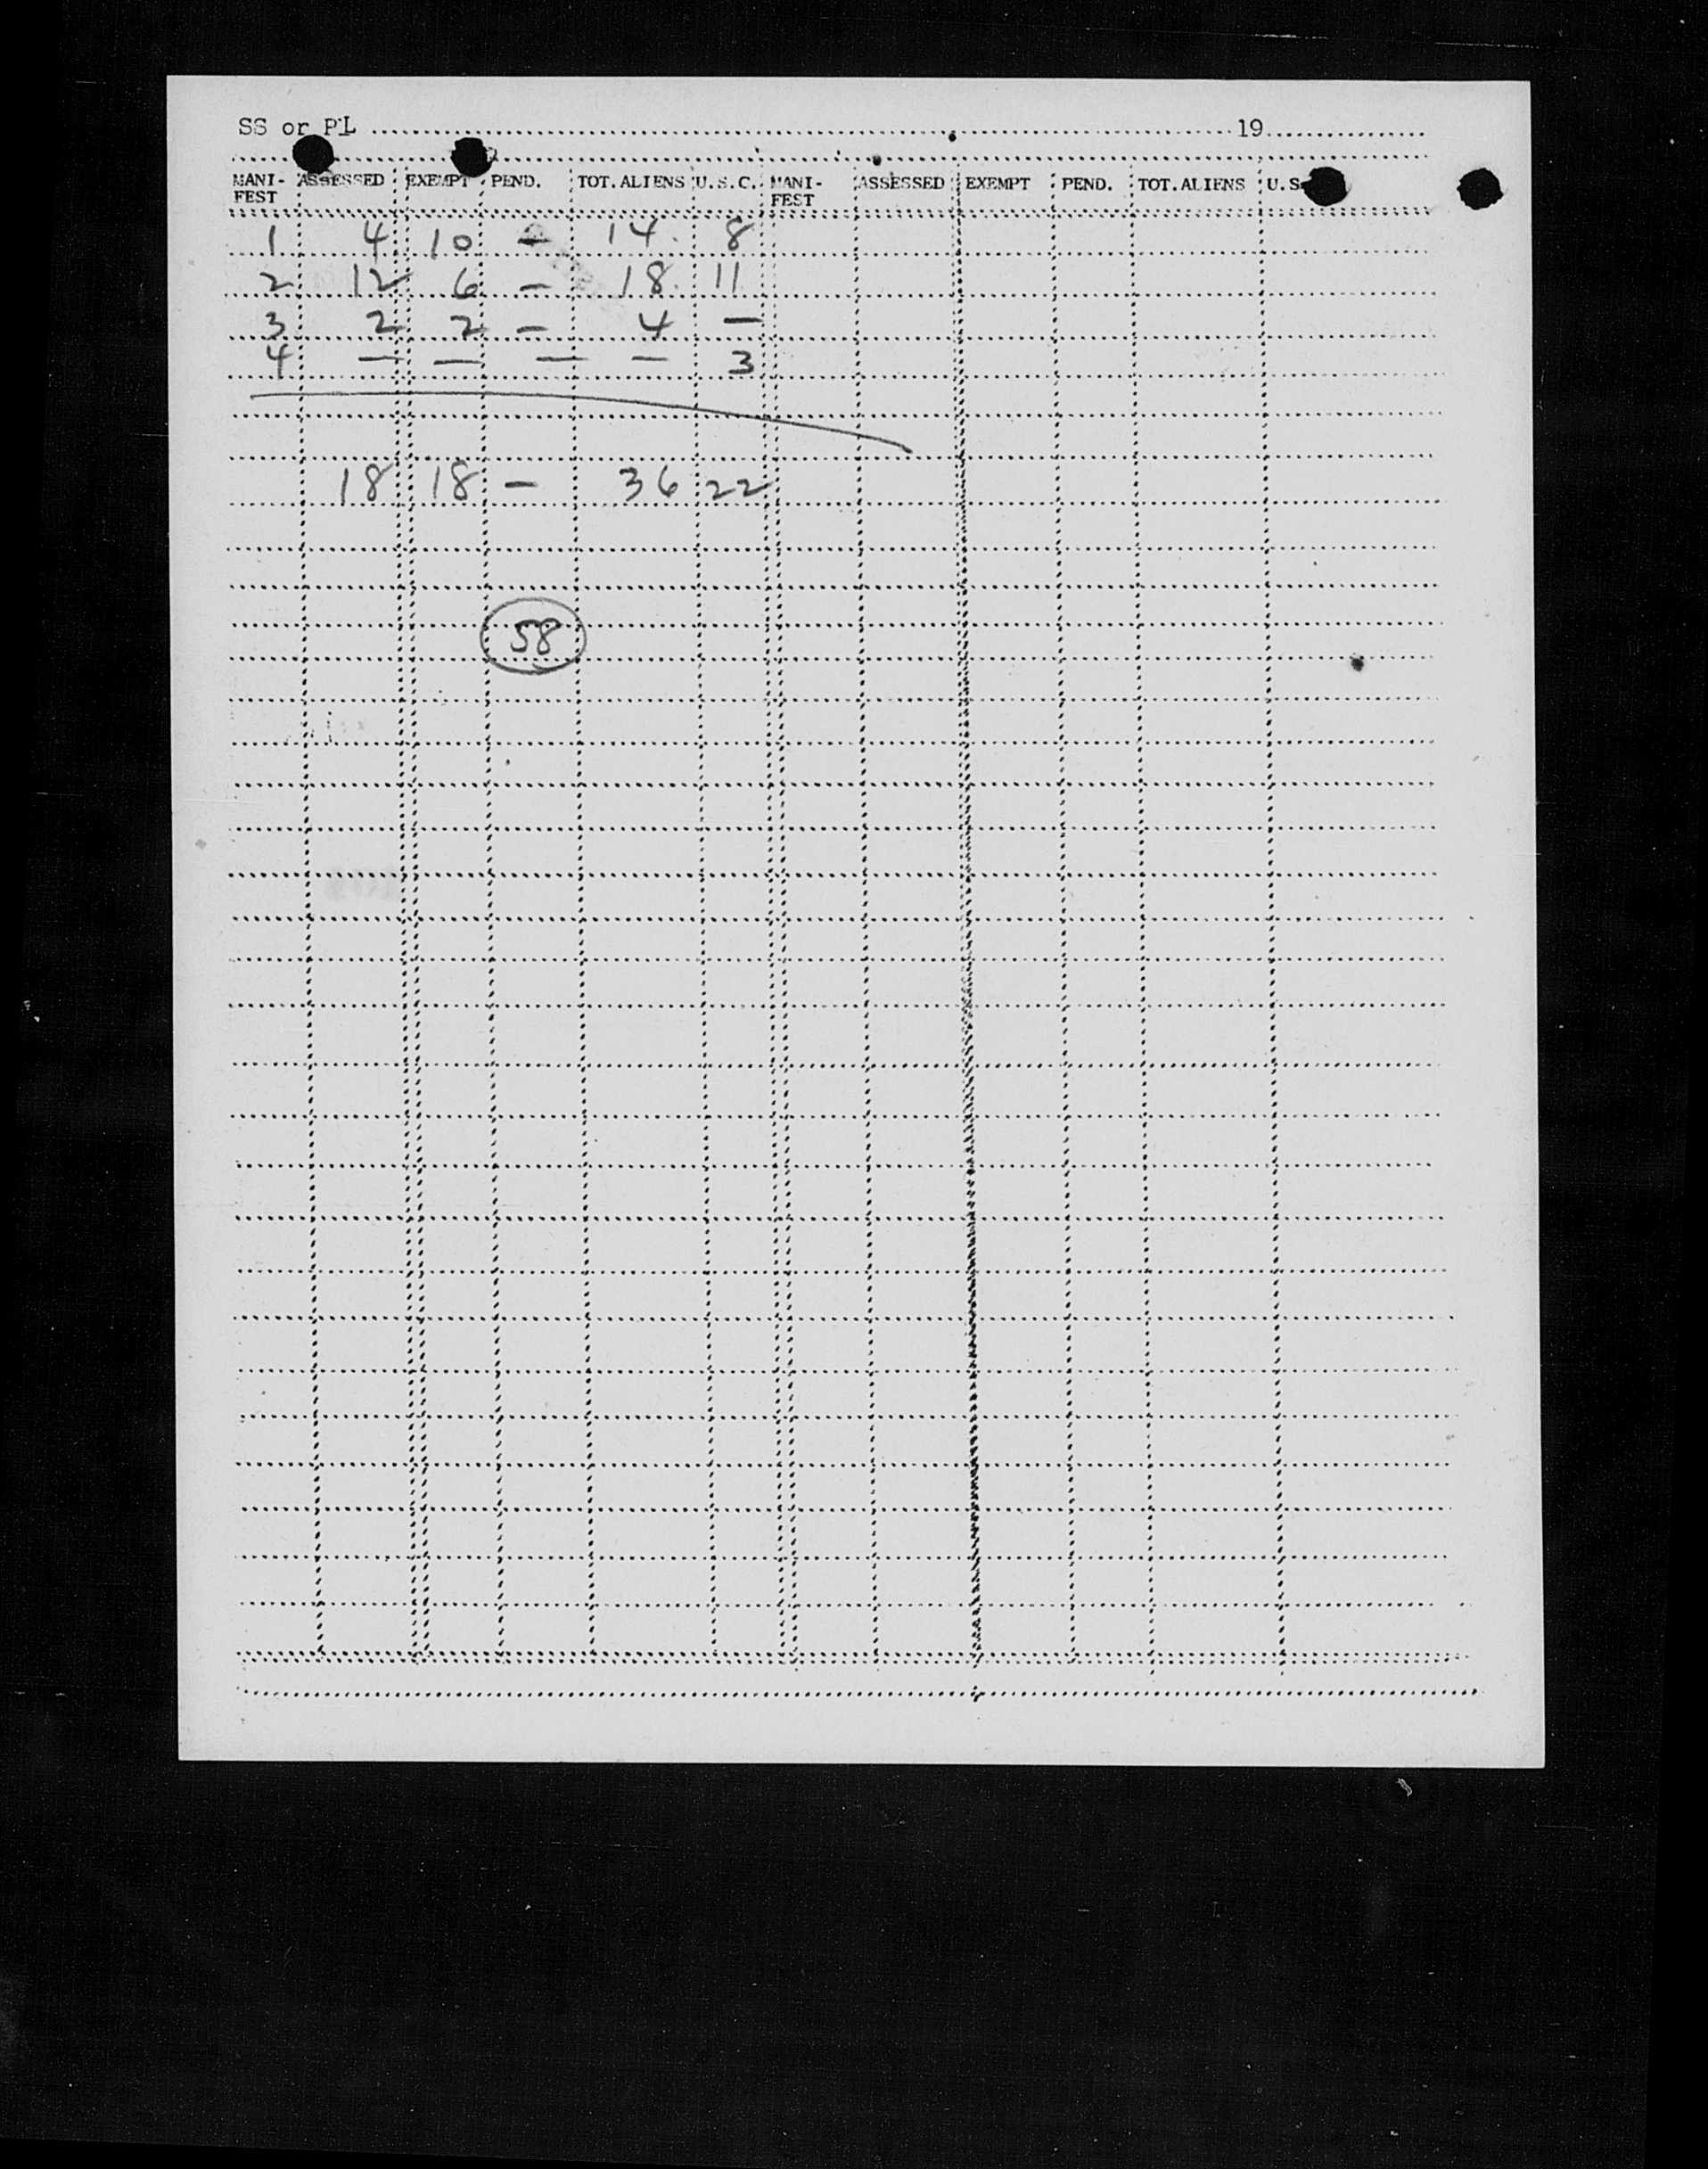 SS or PL 19
MANI-FEST ASSESSED EXEMPT PEND. TOT. ALIENS U.S.C. MANI-FEST ASSESSED EXEMPT PEND. TOT. ALIENS U.S.
1 4 10 - 14. 8
2 12 6 - 18. 11
3 2 2 - 4 -
4 - - - - 3
18 18 - 36 22
58